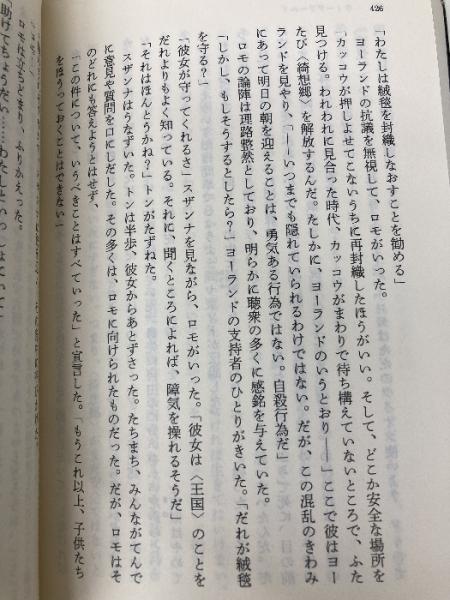 426
「わたしは絨毯を封織しなおすことを勧める」
ヨーランドの抗議を無視して、ロモがいった。
「カッコウが押しよせてこないうちに再封織したほうがいい。そして、どこか安全な場所を
見つける。われわれに見合った時代、カッコウがまわりで待ち構えていないところで、ふた
たび〈綺想郷〉を解放するんだ。たしかに、ヨーランドのいうとおり――」ここで彼はヨー
ランドを見やり、「――いつまでも隠れていられるわけではない。だが、この混乱のきわみ
にあって明日の朝を迎えることは、勇気ある行為ではない。自殺行為だ」
ロモの論陣は理路整然としており、明らかに聴衆の多くに感銘を与えていた。
「しかし、もしそうするとしたら？」ヨーランドの支持者のひとりがきいた。「だれが絨毯
を守る？」
「彼女が守ってくれるさ」スザンナを見ながら、ロモがいった。「彼女は〈王国〉のことを
だれよりもよく知っている。それに、聞くところによれば、障気を操れるそうだ」
「それはほんとうかね？」トンがたずねた。
スザンナはうなずいた。トンは半歩、彼女からあとずさった。たちまち、みんながてんで
に意見や質問を口にしだした。その多くは、ロモに向けられたものだった。だが、ロモはそ
のどれにも答えようとはせず、
「この件について、いうべきことはすべていった」と宣言した。「もうこれ以上、子供たち
をほうっておくことはできない」
ロモは立ちどまり、ふりかえった。
助けてちょうだい……わたしといっしょにいて」